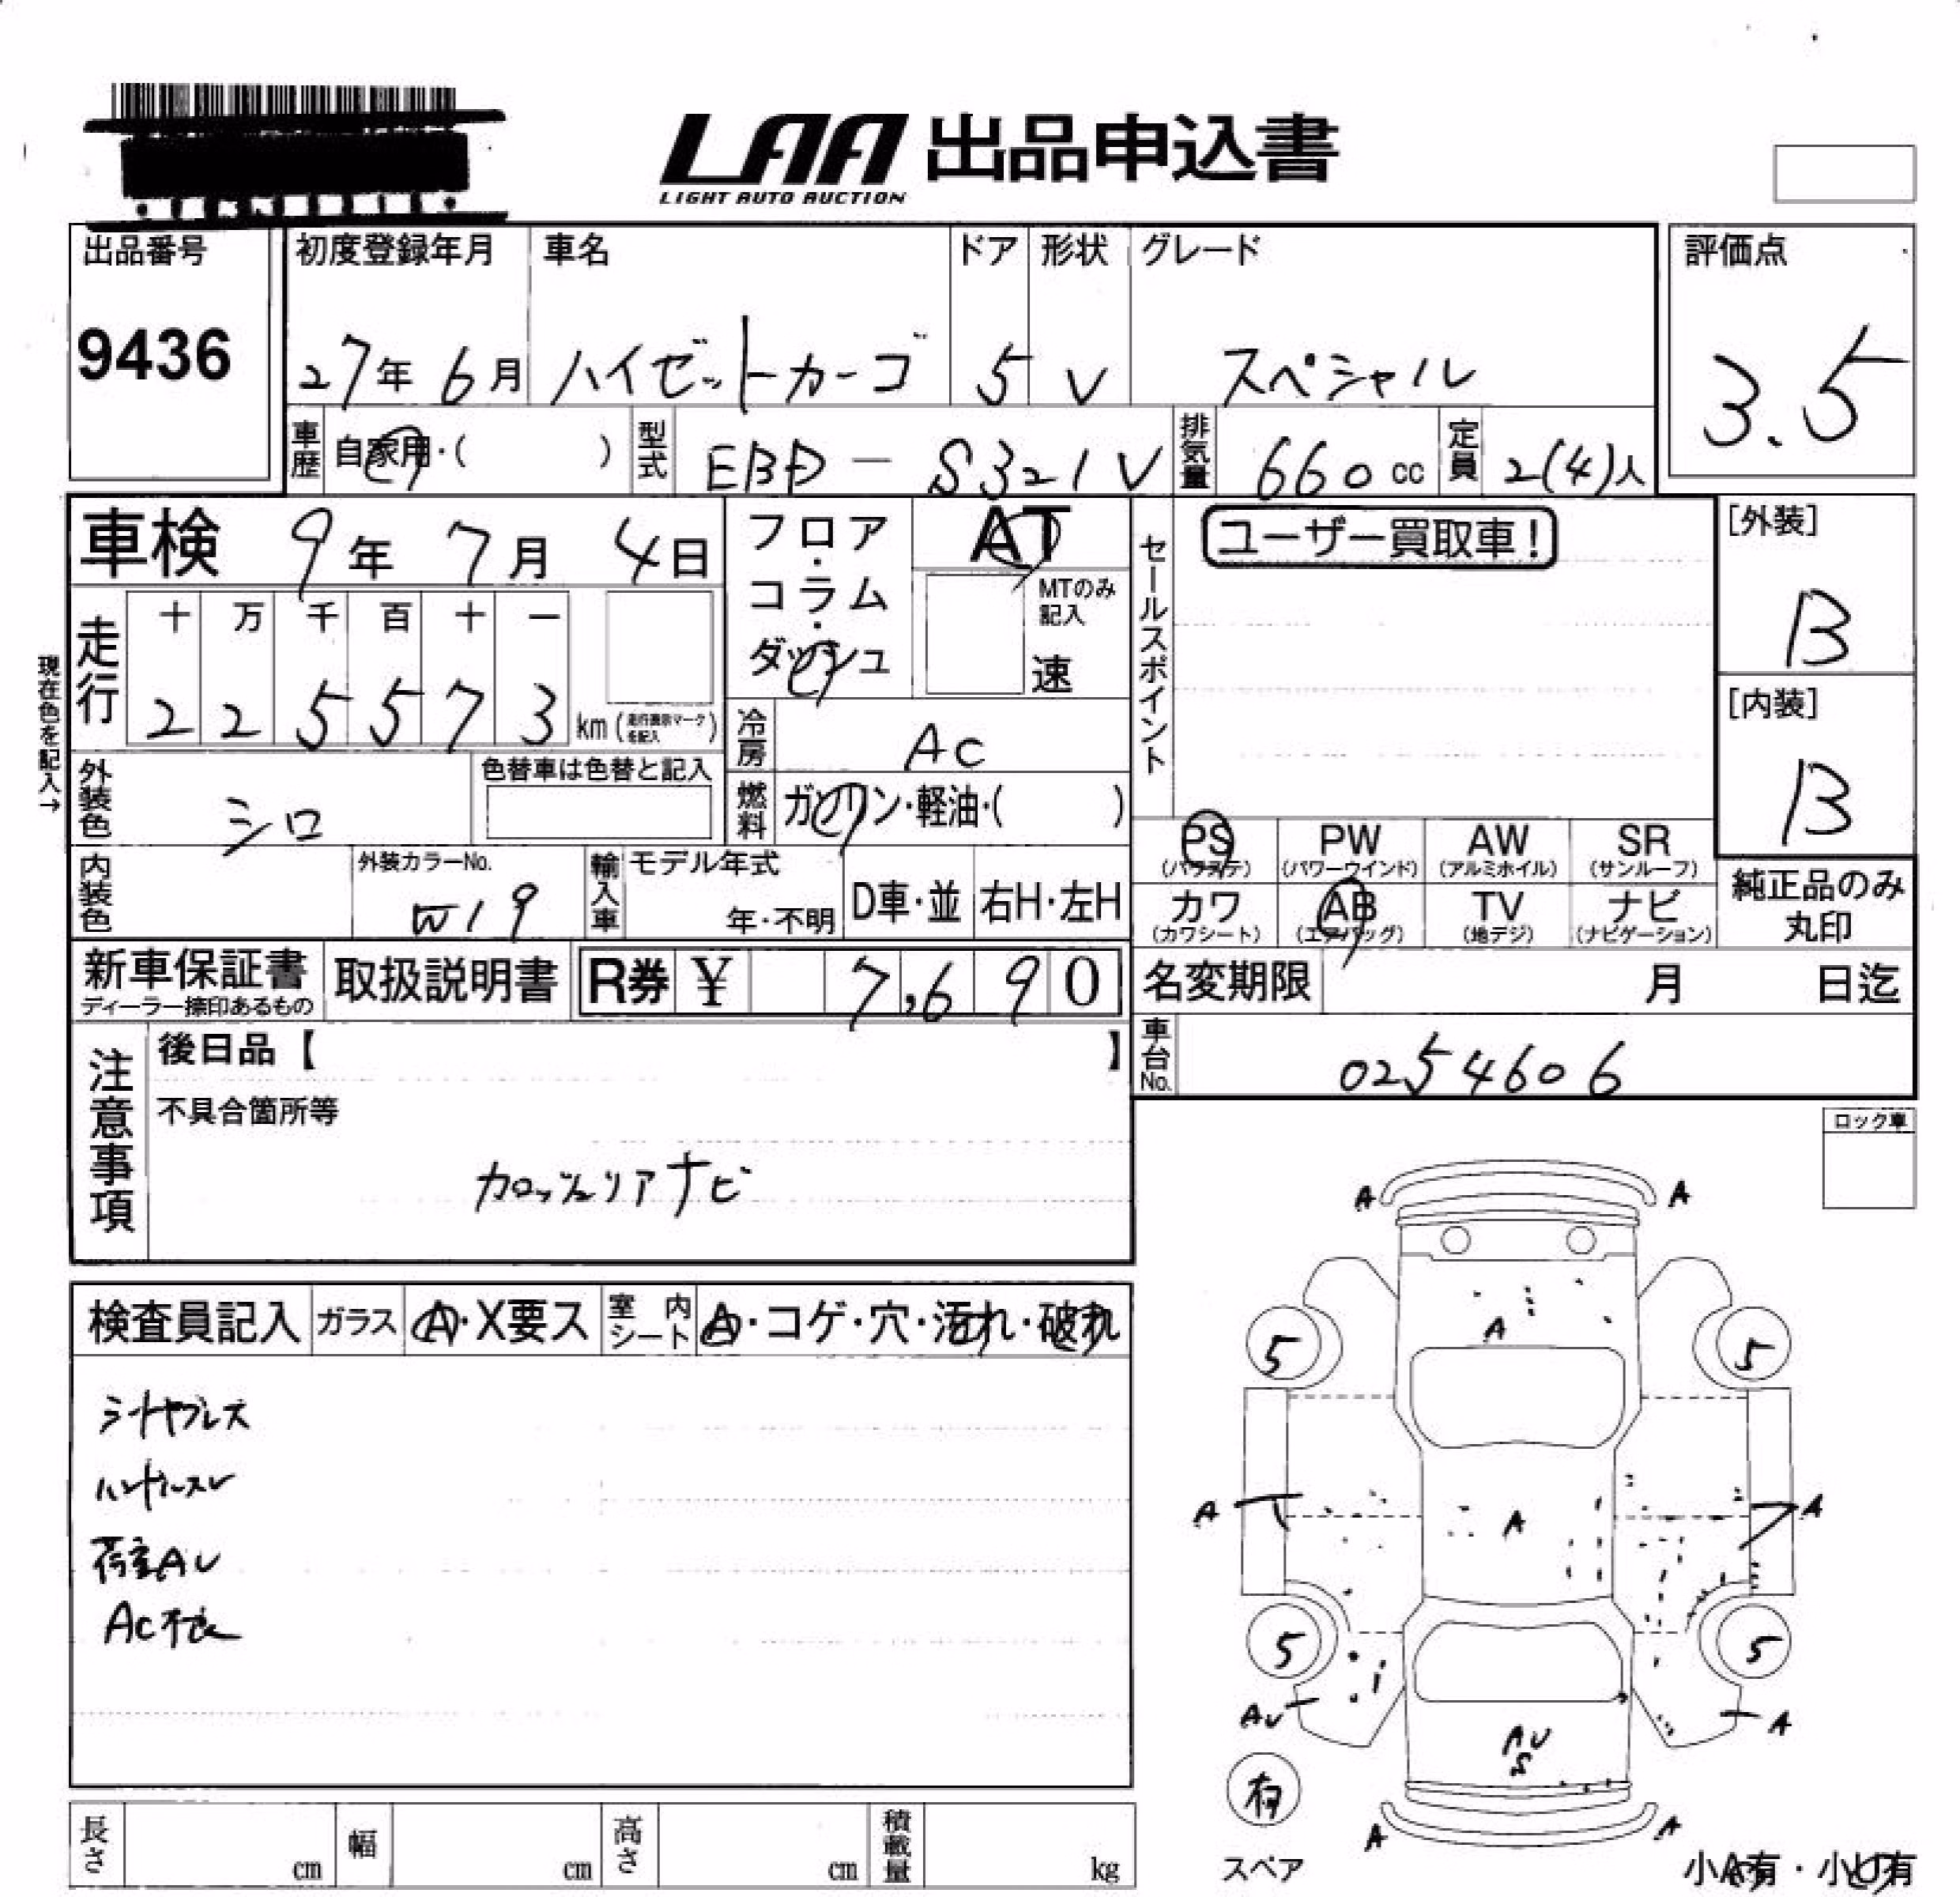 LAA 出品申込書
LIGHT AUTO AUCTION
出品番号 初度登録年月 車名 ドア 形状 グレード 評価点
9436 27年 6月 ハイゼットカーゴ 5 V スペシャル 3.5
車歴 自家用・( ) 型式 EBD － S321V 排気量 660 cc 定員 2(4)人
車検 9年 7月 4日 フロア・コラム・ダッシュ AT セールスポイント ユーザー買取車! [外装]
B
MTのみ記入
速
現在色を記入→
走行 十 万 千 百 十 一
2 2 5 5 7 3 km (走行表示マークを記入)
冷房 AC
[内装]
B
外装色 シロ 色替車は色替と記入 燃料 ガソリン・軽油・( )
PS PW AW SR
(パワステ) (パワーウインド) (アルミホイル) (サンルーフ)
内装色 外装カラーNo. W19 輸入車 モデル年式 年・不明 D車・並 右H・左H
カワ AB TV ナビ
(カワシート) (エアバッグ) (地デジ) (ナビゲーション)
純正品のみ
丸印
新車保証書 取扱説明書 R券 ¥ 7,690 名変期限 月 日迄
ディーラー捺印あるもの
注意事項 後日品【 】 車台No. 0254606
不具合箇所等
カロッツェリアナビ
ロック車
検査員記入 ガラス A・X要ス 室内シート A・コゲ・穴・汚れ・破れ
シートヤブレス
ハンドルスレ
荷室AU
AC不良
A A
A
5 5
A A A
5 5
AU A
AU
S
有
A A
スペア
小A有・小U有
長さ cm 幅 cm 高さ cm 積載量 kg